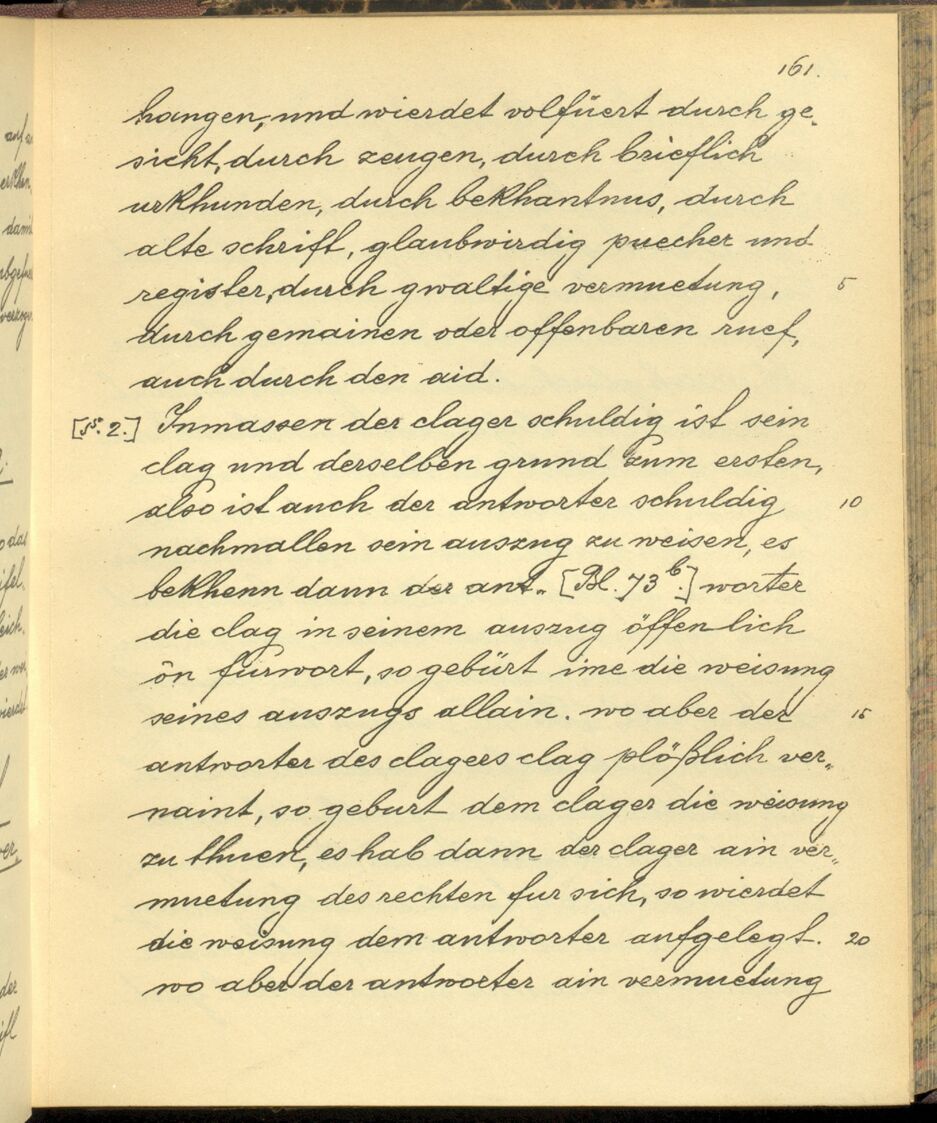 161.
hangen, und wierdet volfüert durch ge„
sicht, durch zeugen, durch brieflich
urkhunden, durch bekhantnus, durch
alte schrift, glaubwirdig puecher und
register, durch gwaltige vermuetung, 5
durch gemainen oder offenbaren ruef,
auch durch den aid.
[§. 2.] Inmassen der clager schuldig ist sein
clag und derselben grund zum ersten,
also ist auch der antworter schuldig 10
nachmallen sein auszug zu weisen, es
bekhenn dann der ant„ [Bl. 73b.] worter
die clag in seinem auszug öffenlich
ôn furwort, so gebürt ime die weisung
seines auszugs allain. wo aber der 15
antworter des clagers clag plößlich ver„
naint, so geburt dem clager die weisung
zu thuen, es hab dann der clager ain ver„
muetung des rechten fur sich, so wierdet
die weisung dem antworter aufgelegt. 20
wo aber der antworter ain vermuetung